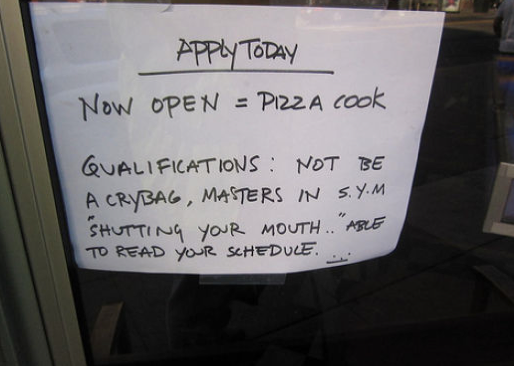 APPLY TODAY
NOW OPEN = PIZZA COOK
QUALIFICATIONS: NOT BE
A CRYBAG, MASTERS IN S.Y.M
"SHUTTING YOUR MOUTH.." ABLE
TO READ YOUR SCHEDULE. ...